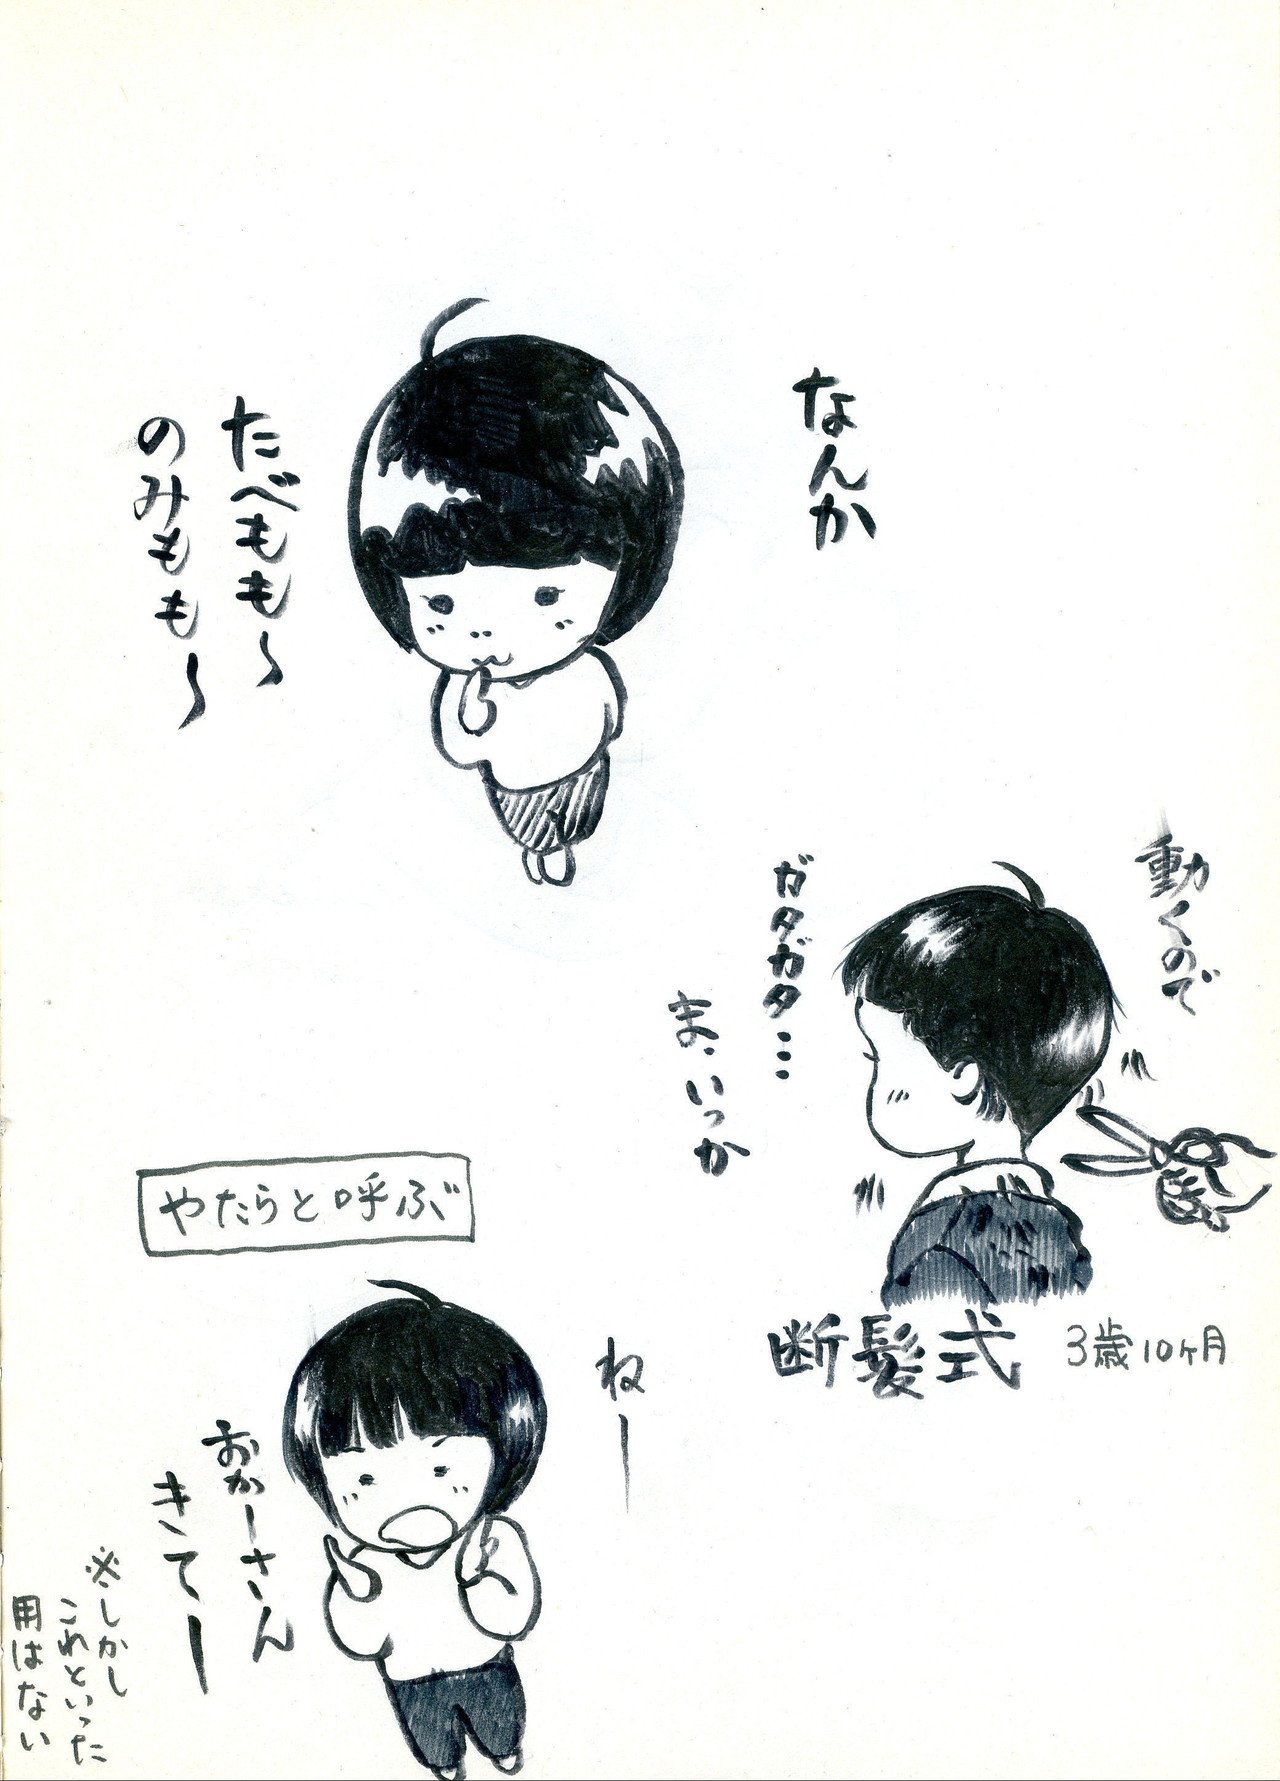 なんか
たべもも〜
のみもも〜
動くので
ガタガタ…
ま、いっか
断髪式 3歳10ヶ月
やたらと呼ぶ
ねー
おかーさん
きてー
※しかし
これといった
用はない